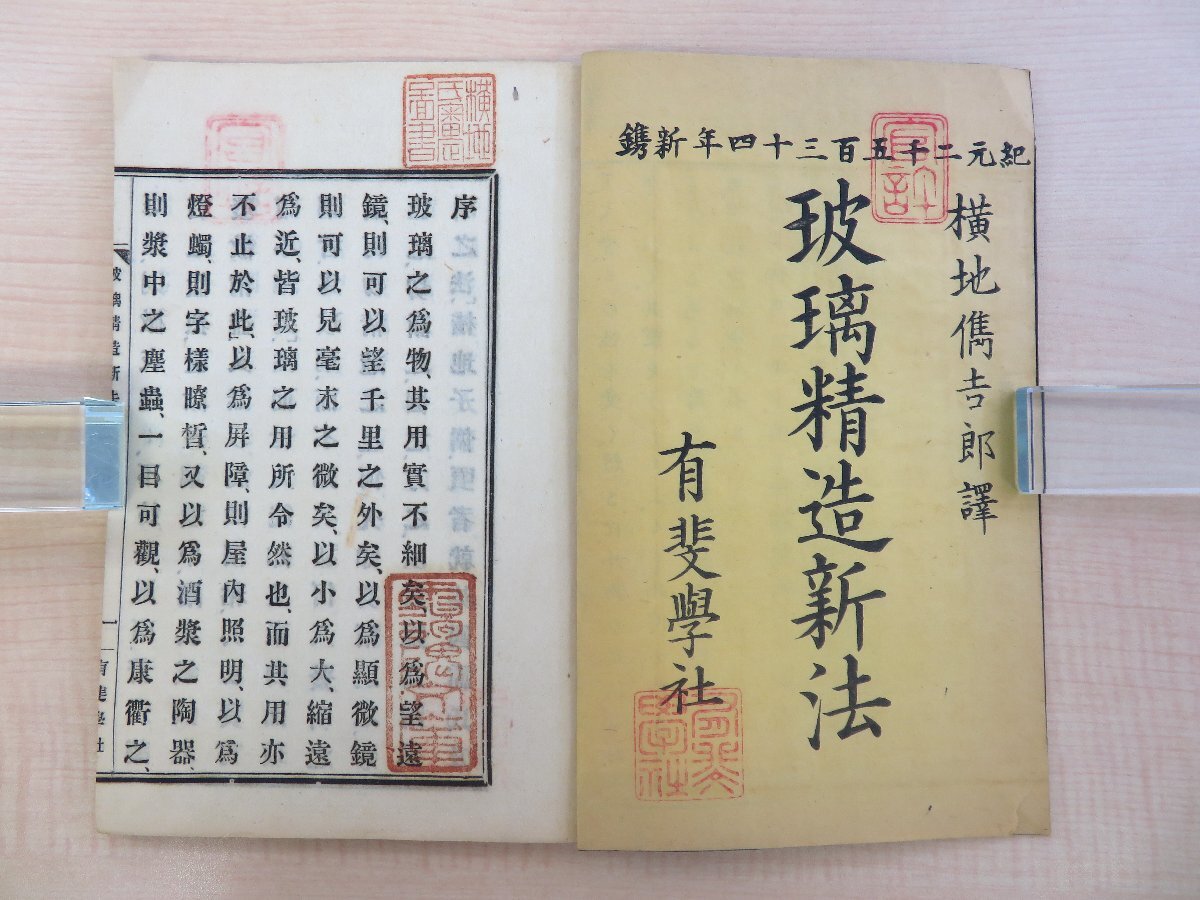 紀元二千五百三十四年新鐫
横地儁吉郎譯
玻璃精造新法
有斐學社
官許
有斐學社
横地
氏
圖書
序
玻璃之爲物、其用實不細矣、以爲望遠
鏡、則可以望千里之外矣、以爲顯微鏡
則可以見毫末之微矣、以小爲大、縮遠
爲近、皆玻璃之用所令然也、而其用亦
不止於此、以爲屏障、則屋內照明、以爲
燈蠋、則字樣瞭晳、又以爲酒漿之陶器、
則漿中之塵蟲、一目可觀、以爲康衢之、
玻璃精造新法
一
有斐學社